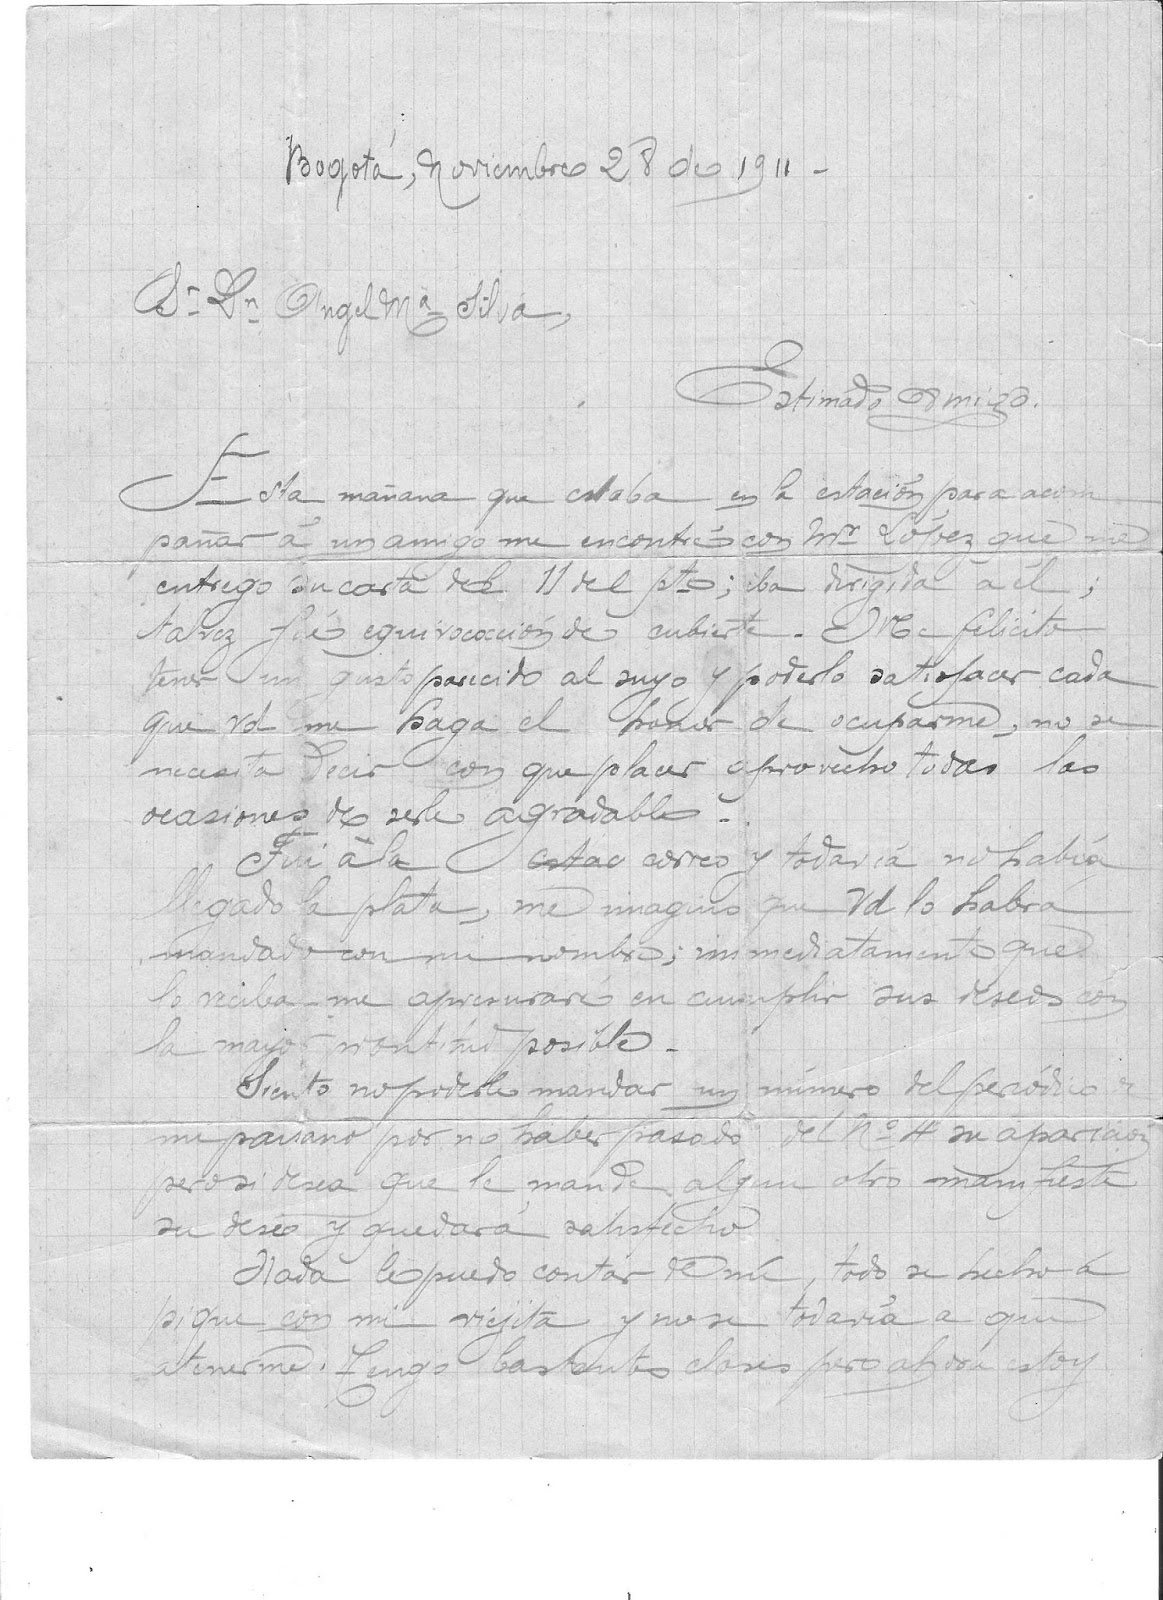 Bogotá, Noviembre 28 de 1911 -
Sr Dn Angel Ma Silva,
Estimado Amigo.
Esta mañana que estaba en la estación para acom
pañar á un amigo me encontré con Mr López que me
entrego su carta del 11 del pto; iba dirigida á él;
talvez fué equivocación de cubierta. Me felicito
tener un gusto parecido al suyo y poderlo satisfacer cada
que Vd me haga el honor de ocuparme, no se
necesita decir con que placer aprovecho todas las
ocasiones de serle agradable -.
Fui á la correo y todavía no había
llegado la plata, me imagino que Vd lo habrá
mandado con mi nombre; immediatamente que
lo reciba me apresuraré en cumplir sus deseos con
la mayor prontitud posible -
Siento no poderle mandar un número del periódico de
mi paisano por no haber pasado del No 4 su aparición
pero si desea que le mande algun otro manifieste
su deseo y quedará satisfecho
Nada le puedo contar de mí, todo se hecho á
pique con mi viejita y no se todavía a que
atenerme. Tengo bastantes clases pero ahora estoy